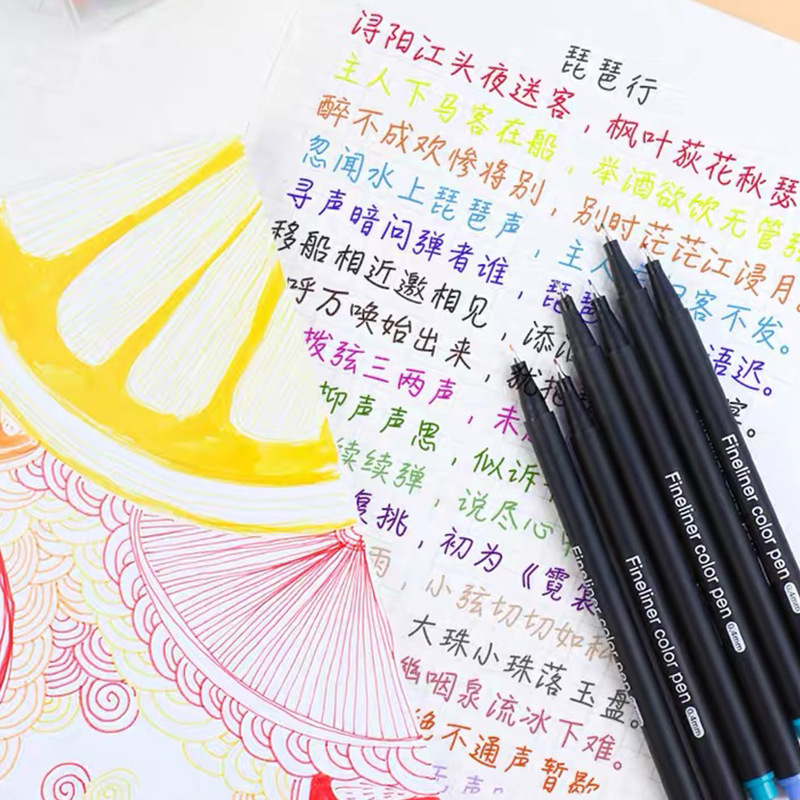 琵琶行
浔阳江头夜送客，枫叶荻花秋瑟
主人下马客在船，举酒欲饮无管
醉不成欢惨将别，别时茫茫江浸月
忽闻水上琵琶声，主人 客不发。
寻声暗问弹者谁，琵琶 语迟。
移船相近邀相见，添酒
呼万唤始出来，犹抱
拨弦三两声，未
抑声声思，似诉
续续弹，说尽心
复挑，初为《霓裳
雨，小弦切切如私
大珠小珠落玉盘。
幽咽泉流冰下难。
绝不通声暂歇
Fineliner color pen 0.4mm
Fineliner color pen 0.4mm
Fineliner color pen 0.4mm
Fineliner color pen